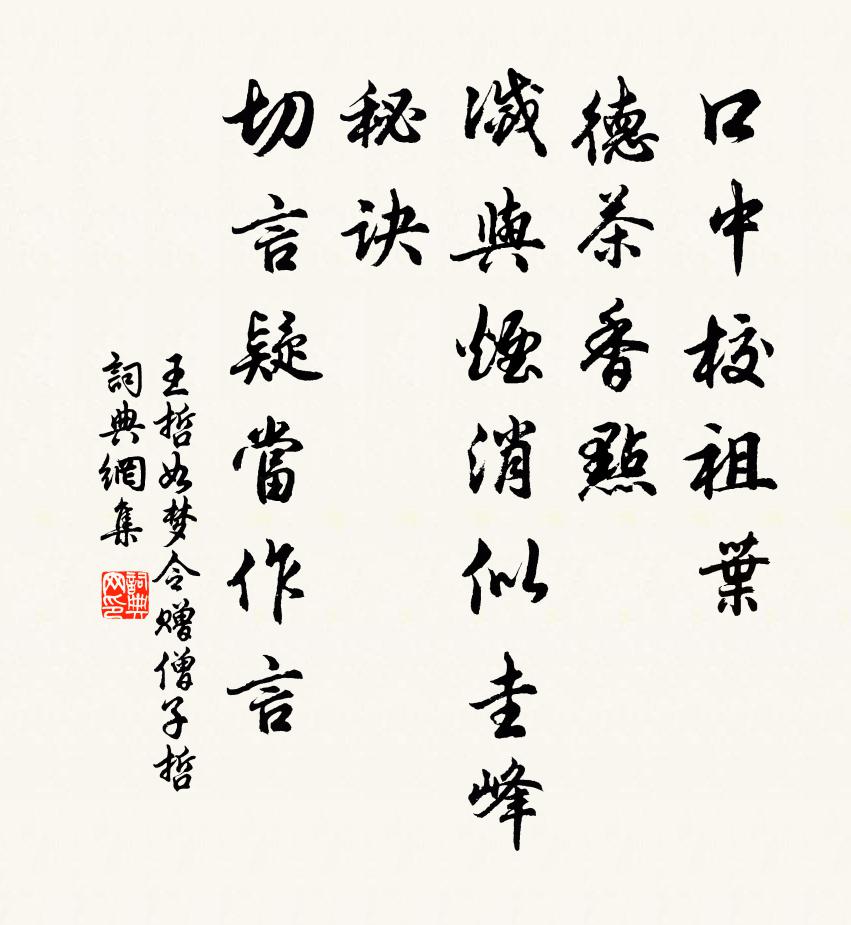 口中校祖葉
德茶香點
滅與煙消似圭峰
秘訣
切言疑當作言
王哲如梦令赠僧子哲
詞典網集
詞典网印